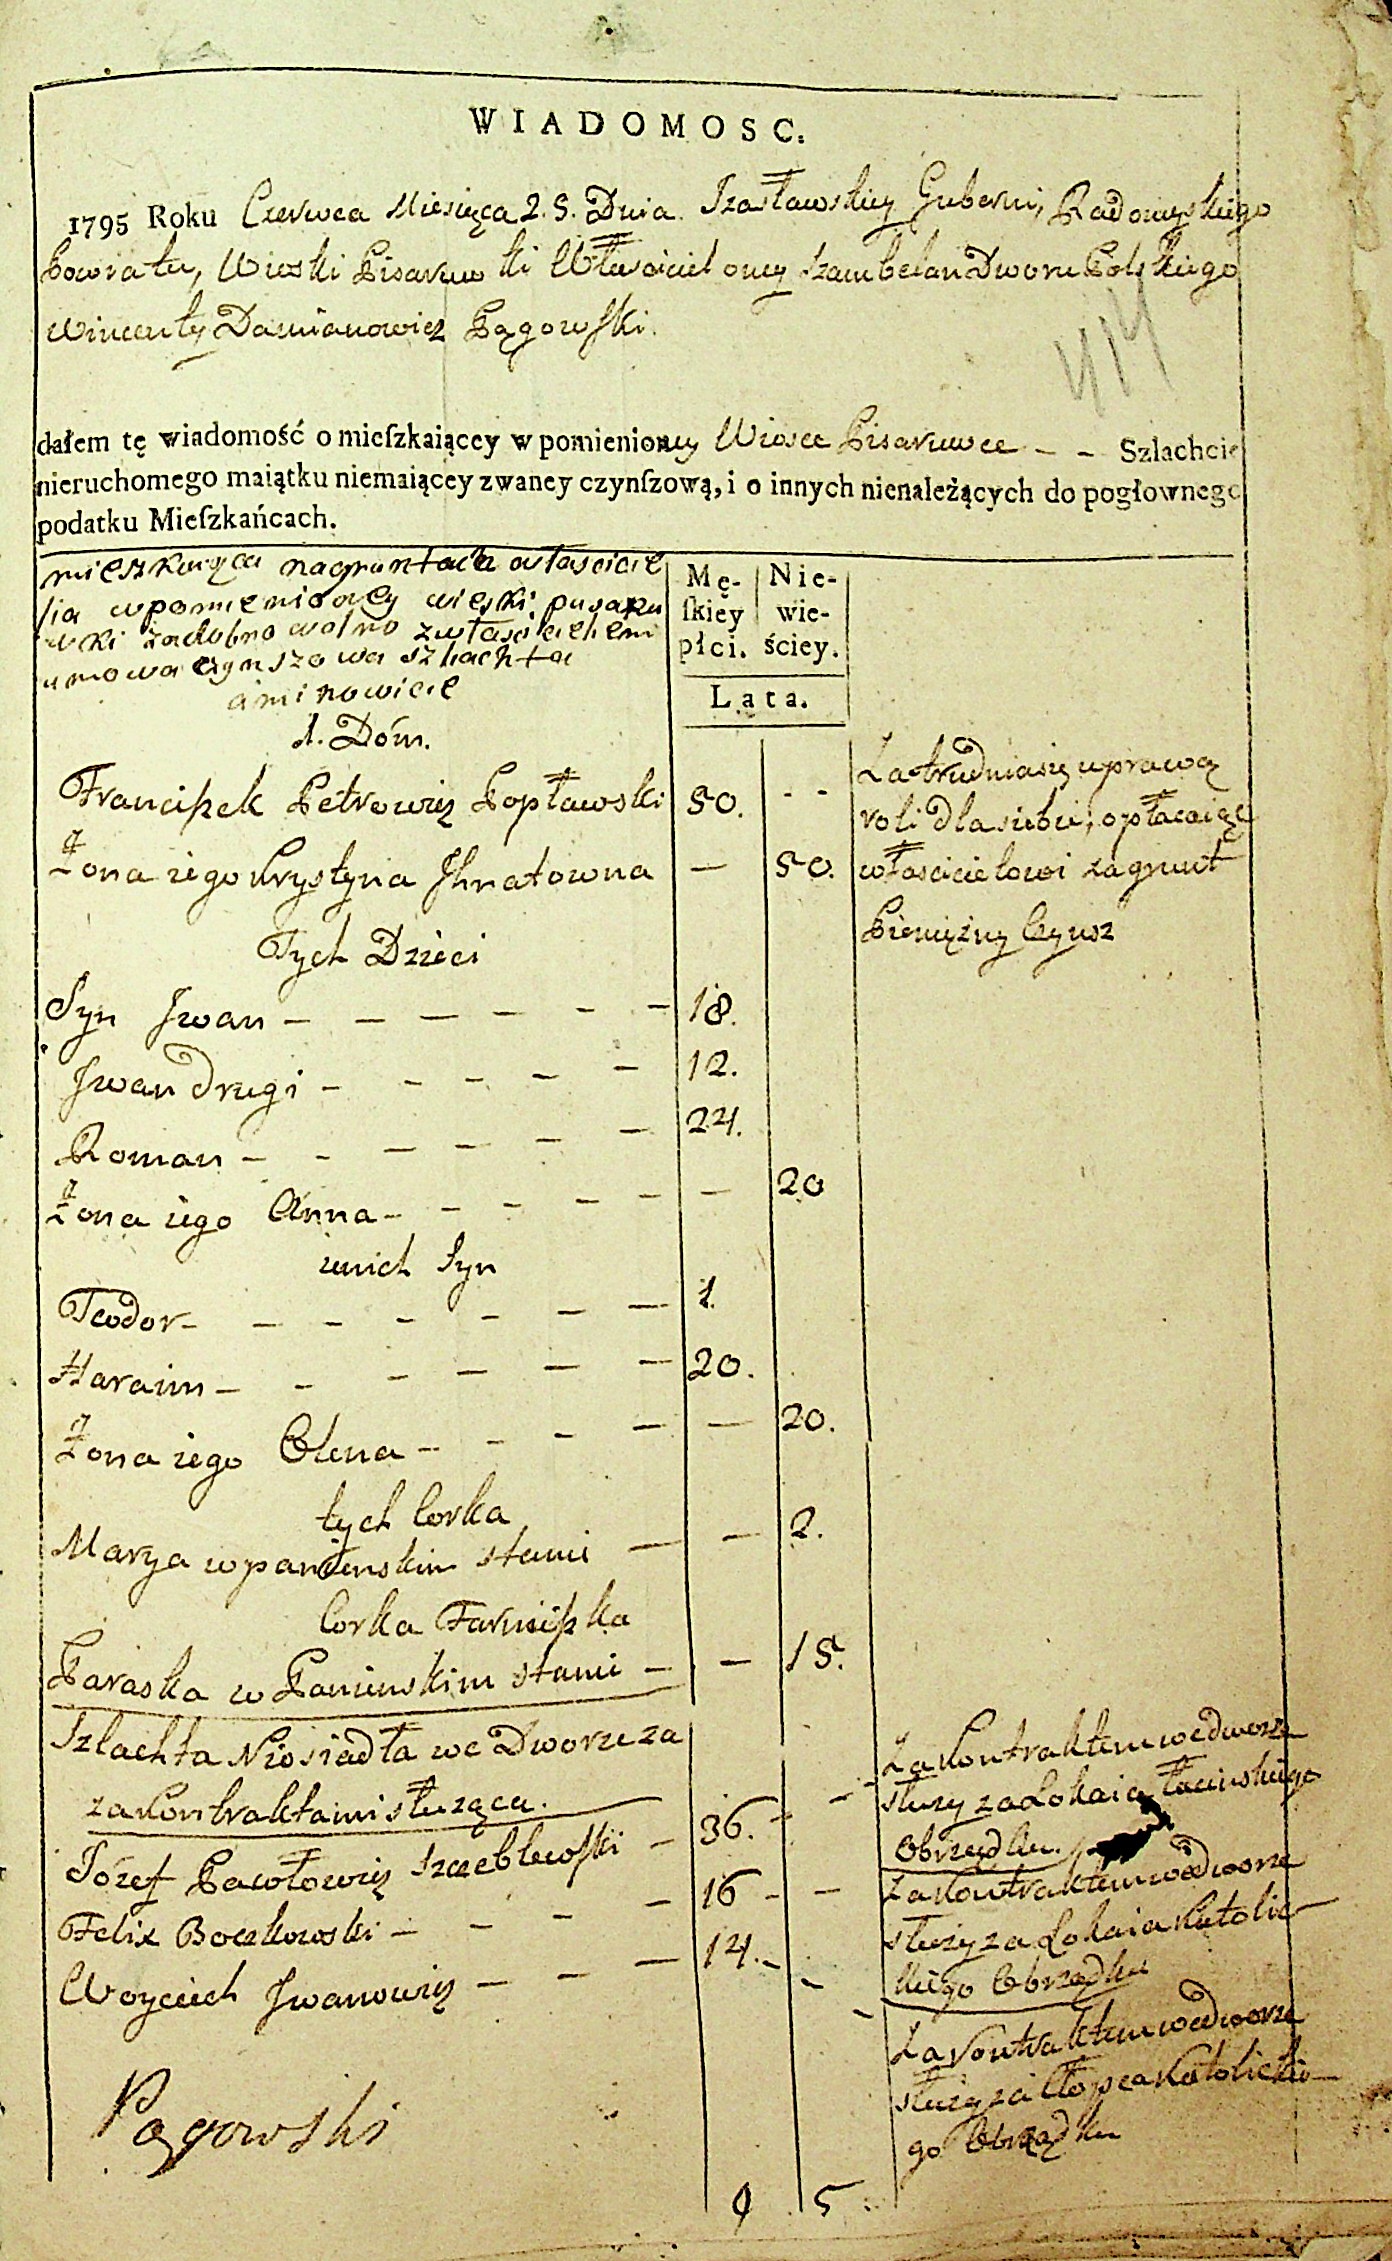 WIADOMOSC.
1795 Roku Czerwca Miesięca 2.8. Dnia. Izasławskiey Guberni, Radomyskiego
Powiatu, Wioski Pisaruwki Właściciel oney Szambelan Dworu Polskiego
Wincenty Damianowicz Pągowski.
414
dałem tę wiadomość o mieſzkaiącey w pomienioney Wiosce Pisaruwce - - Szlachcie
nieruchomego maiątku niemaiącey zwaney czynſzową, i o innych nienależących do pogłownego
podatku Mieſzkańcach.
mieszkaiąca na gruntach właścicie
lia wpomienioney wieski pusaru
wki zadobrowolno zwłaścicielem
umowa czynszowa szlachta
aminowicie
Mę- Nie-
ſkiey wie-
płci. ściey.
Lata.
1. Dóm.
Franciszek Petrowicz Popławski 50. - -
Żona iego Krystyna Ihnatowna — 50.
Zatrudnia się uprawą
roli dla siebie, opłacaiąc
właścicielowi za grunt
Pieniężny Czynsz
Tych Dzieci
Syn Jwan - - - - - - 18.
Jwan drugi - - - - - 12.
Roman - - - - - - 24.
Żona iego Anna - - - - - — 20
unich Syn
Teodor - - - - - - - 1.
Haraim - - - - - - 20.
Żona iego Olena - - - - — 20.
tych Corka
Marya w panienskim stanie — — 2.
Corka Farniszka
Paraska w Panienskim stanie — — 15.
Szlachta Niosiadła we Dworze za
za kontraktami służąca.
Józef Pawłowicz Szczeblewski — 36. - -
Za Kontraktem we dworze
służy za Lokaia Łacinskiego
Obrządku.
Felix Boczkowski - - - - 16 - -
Za Kontraktem we dworze
służy za Lokaia Katolic-
kiego Obrządku
Woyciech Jwanowicz - - - 14. - - -
Za Kontraktem we dworze
służy za Chłopca Katolickie-
go Obrządku
Pągowski
9 5